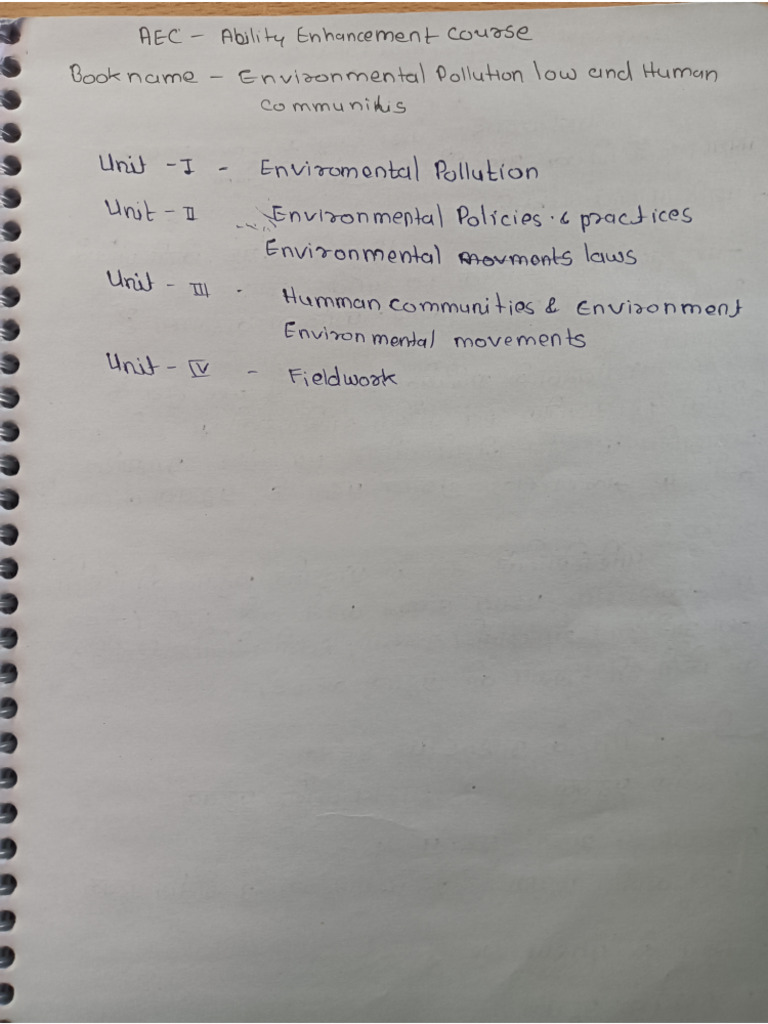 AEC - Ability Enhancement Course
Book name - Environmental Pollution low and Human
Communitis
Unit - I - Enviromental Pollution
Unit - II Environmental Policies & practices
Environmental movments laws
Unit - III - Humman communities & Environment
Environmental movements
Unit - IV - Fieldwork